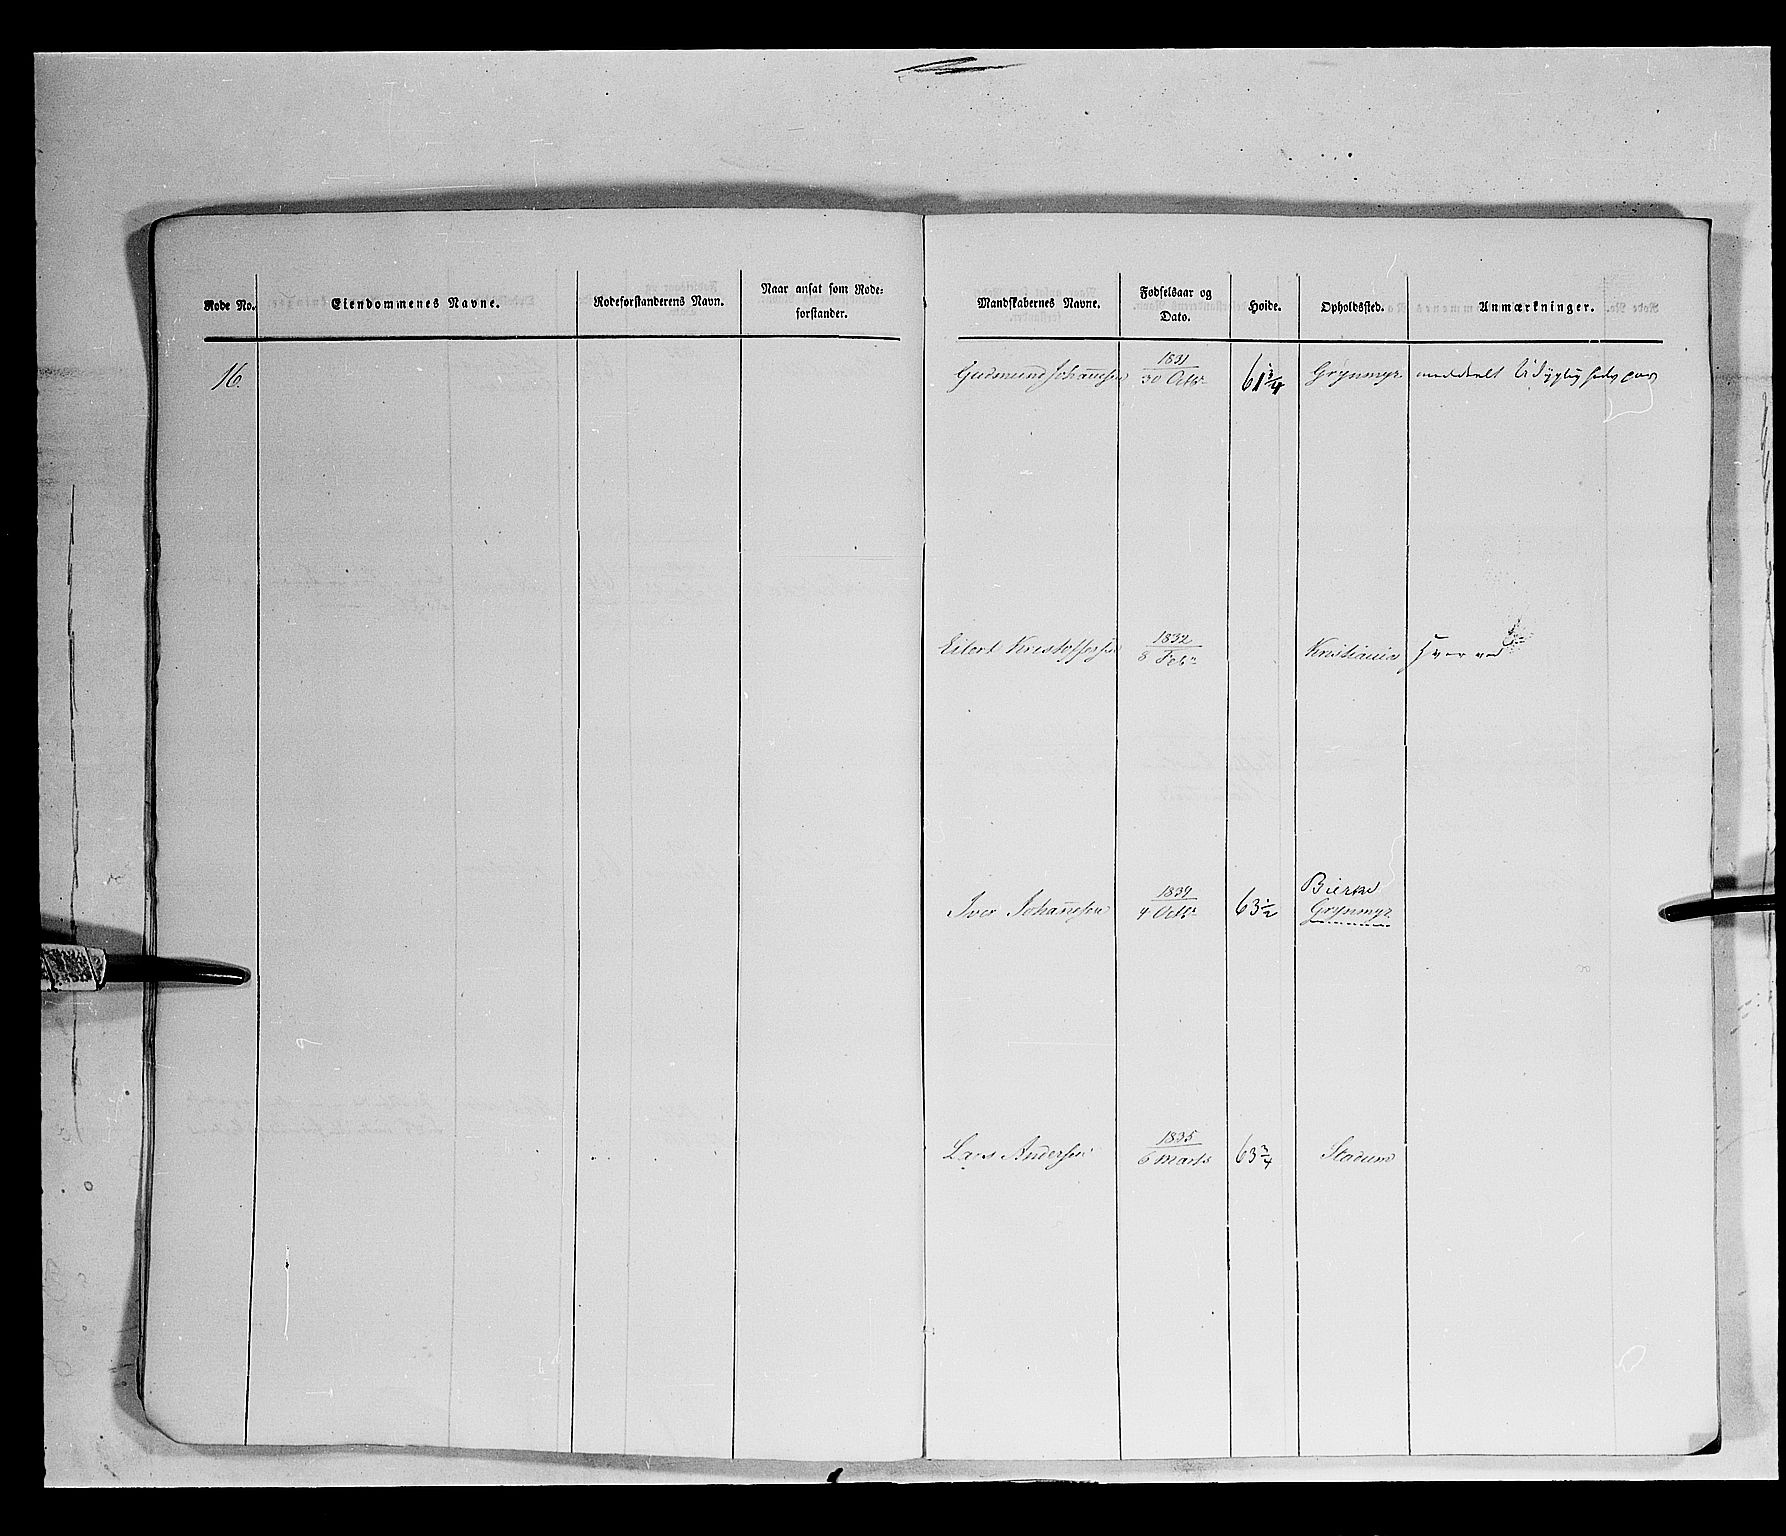 Rode No. Eiendommenes Navne. Rodeforstanderens Navn. Naar ansat som Rode-
forstander. Mandskabernes Navne. Fødselsaar og
Dato. Høide. Opholdssted. Anmærkninger.
16
Gudmund Johannesen 1831
30 Octbr 61 3/4 Grynmyr meddeelt Udygtighedspas
Eilert Kristoffersen 1832
8 Febr Kristiania
Iver Johannesen 1834
4 Octbr 63 1/2 Bierke
Grynmyr
Lars Andersen 1835
6 Marts 63 3/4 Stadum